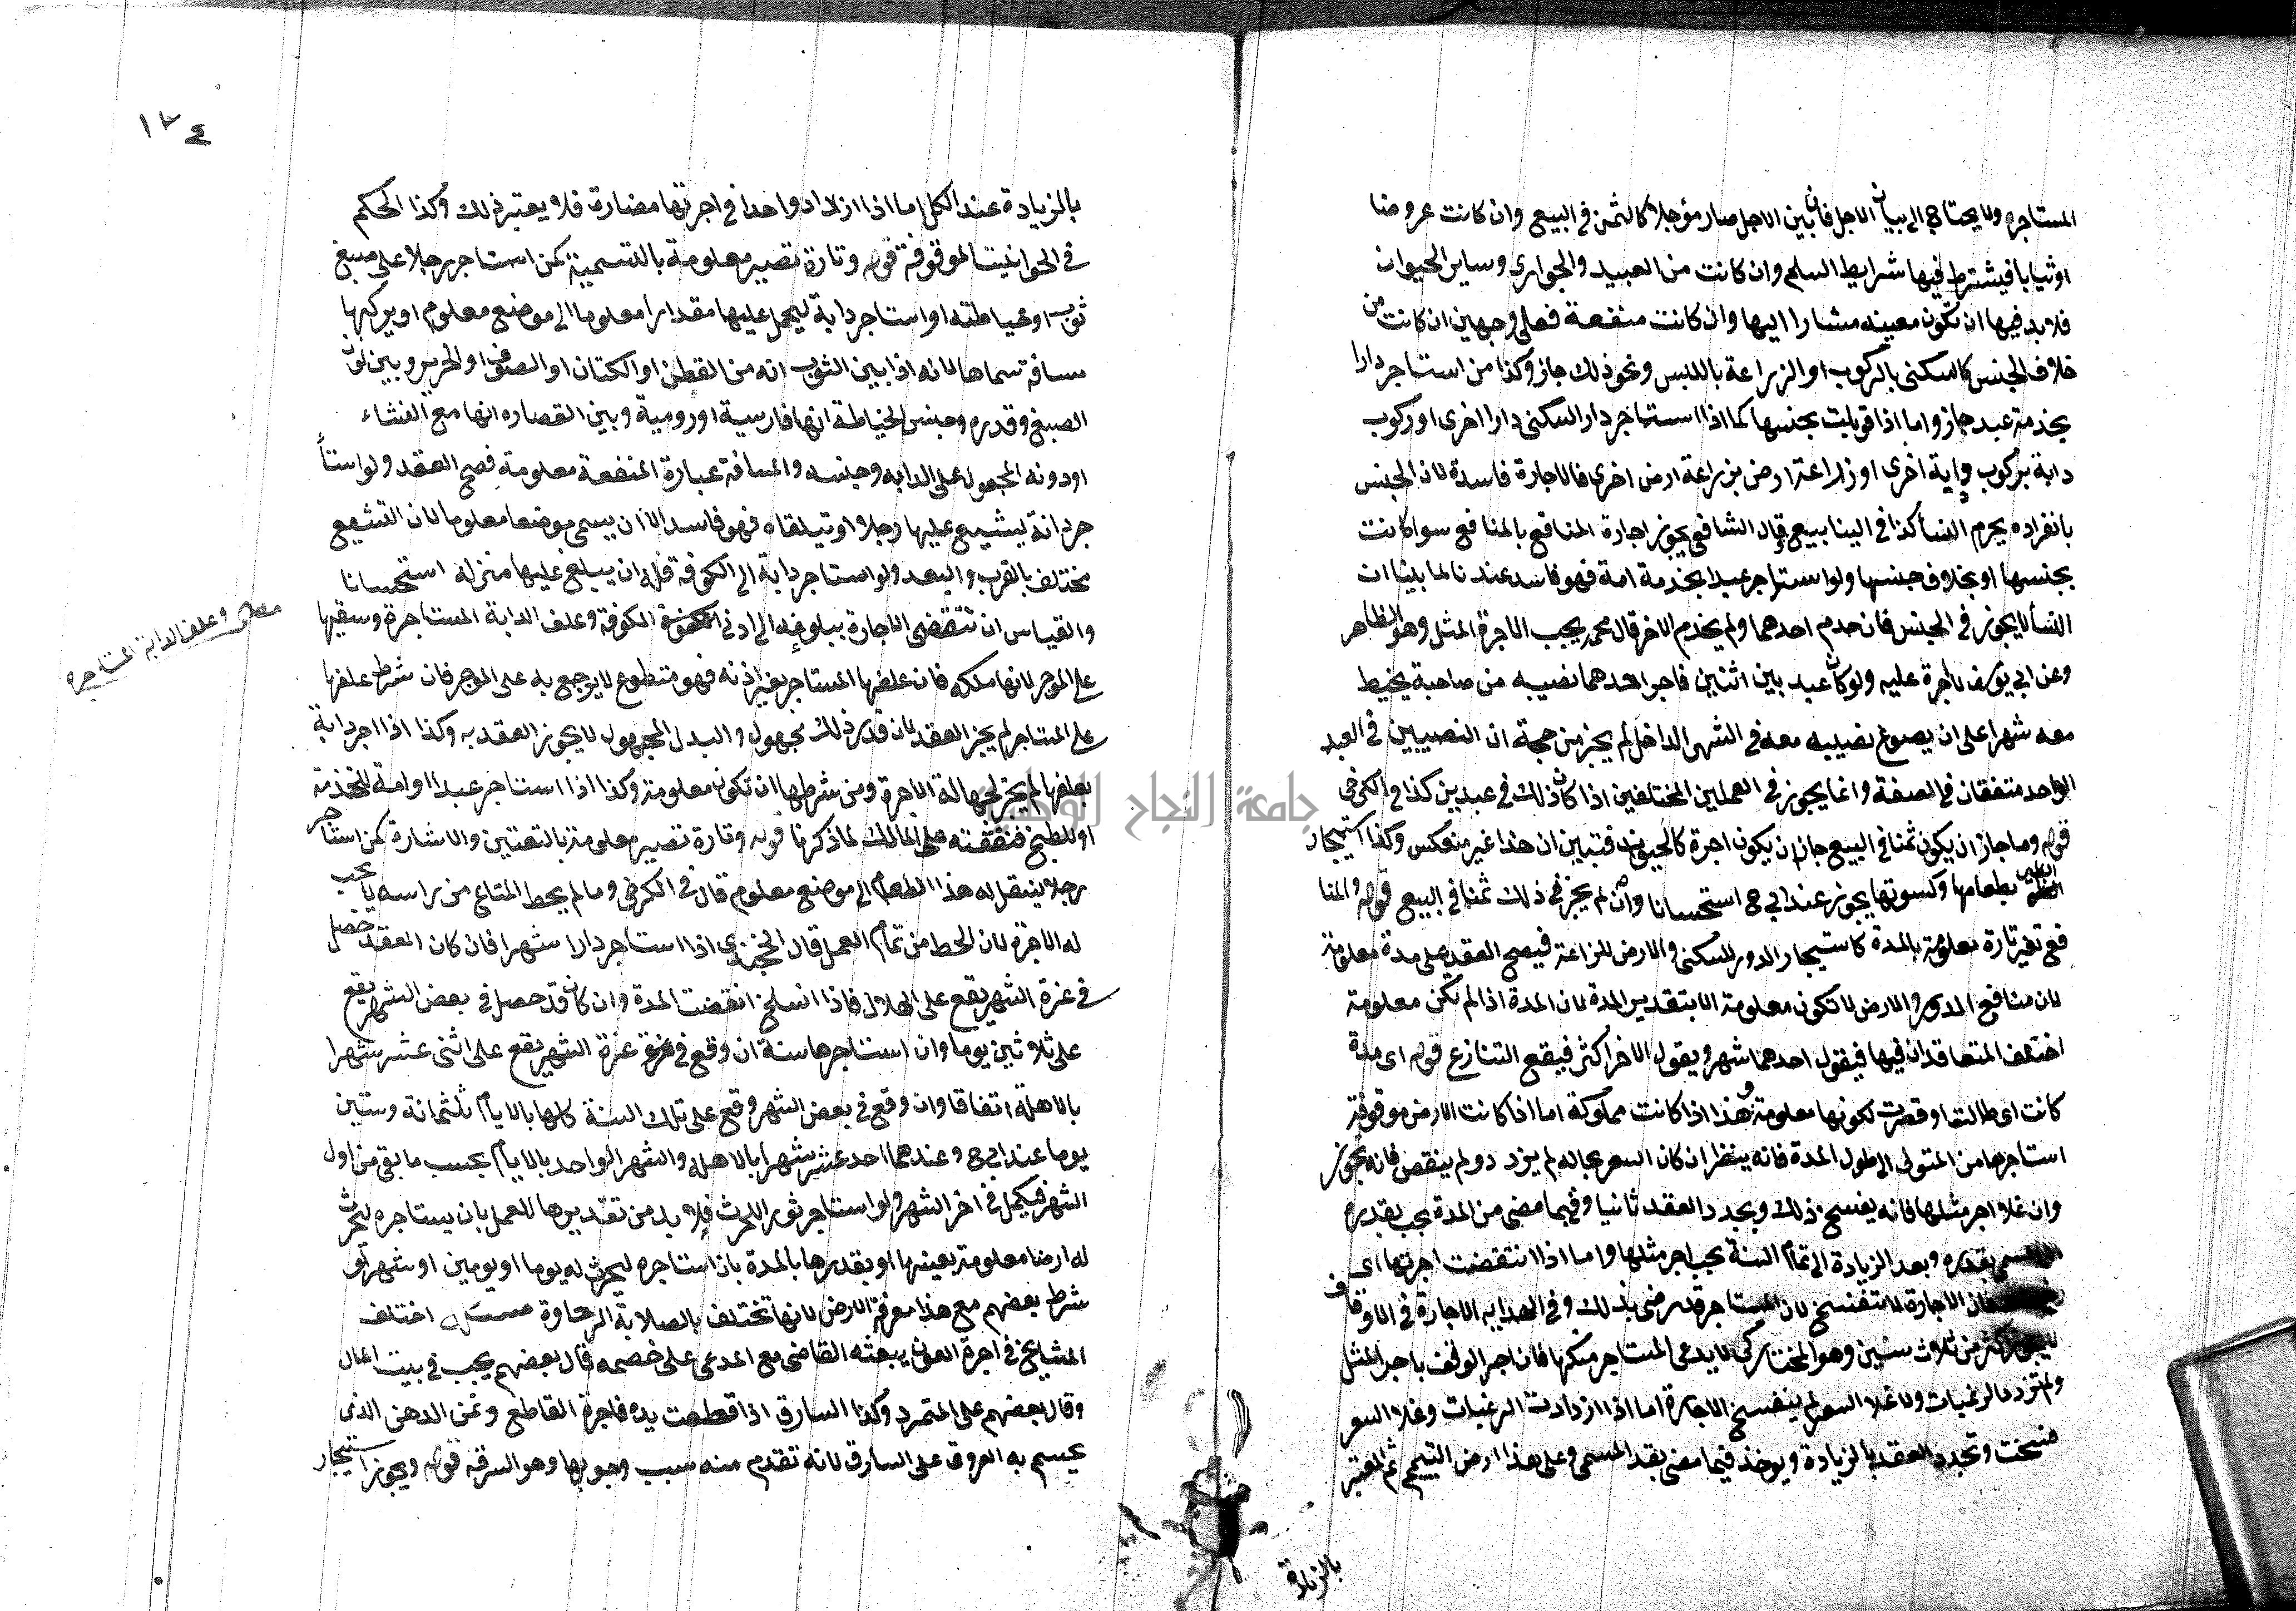 المستاجره ولا يحتاج الى بيان الاجل فان بين الاجل صار مؤجلا كالثمن في البيع وان كانت عروضا
او ثيابا فيشترط فيها شرايط السلم وان كانت من العبيد والجواري وساير الحيوان
فلا بد فيها ان تكون معينه مشارا اليها وان كانت منفعة فعلى وجهين ان كانت من
خلاف الجنس كالسكنى بالركوب او الزراعة باللبس ونحو ذلك جاز وكذا من استاجر دارا
بخدمة عبد جاز واما اذا قوبلت بجنسها كما اذا استاجر دار السكنى دارا اخرى او ركوب
دابة بركوب دابة اخرى او زراعة ارض بزراعة ارض اخرى فالاجارة فاسدة لان الجنس
بانفراده يحرم النسأ كذا في الينابيع وقال الشافعي يجوز اجارة المنافع بالمنافع سوا كانت
بجنسها او بخلاف جنسها ولو استاجر عبدا بخدمة امة فهو فاسد عندنا لما بينا ان
النسأ لا يجوز في الجنس فان خدم احدهما ولم يخدم الاخر قال محمد يجب الاجرة المثل وهو الظاهر
وعن ابي يوسف لا اجرة عليه ولو كان عبد بين اثنين فاجر احدهما نصيبه من صاحبة يخيط
معه شهرا على ان يصوغ نصيبه معه في الشهر الداخل لم يجز من جهة ان النصيبين في العبد
الواحد متفقان في الصفة وانما يجوز في العملين المختلفين اذا كان ذلك في عبدين كذا في الكرخي
قوله وما جاز ان يكون ثمنا في البيع جاز ان يكون اجرة كالحيوان فتبين ان هذا غير منعكس وكذا استيجار
الظير بطعامها وكسوتها يجوز عند ابي ح استحسانا وان لم يجز في ذلك ثمنا في البيع قوله والمنا
فع تغير تارة معلومة بالمدة كاستيجار الدور للسكنى والارض للزراعة فيصح العقد على مدة معلومة
لان منافع الدور والارض لا تكون معلومة الا بتقدير المدة لان المدة اذا لم تكن معلومة
اختلف المتعاقدان فيها فيقول احدهما شهر ويقول الاخر اكثر فيقع التنازع قوله اى مدة
كانت اى طالت او قصرت لكونها معلومة وهذا اذا كانت مملوكة اما اذا كانت الارض موقوفة
استاجرها من المتولى الى طول المدة فانه ينظر ان كان السعر بحاله لم يزد دو لم ينقص فانه يجوز
وان غلا اجر مثلها فانه يفسخ ذلك ويجدد العقد ثانيا وفيما مضى من المدة يجب بقدره
بقدره وبعد الزيادة الى تمام السنة يجب اجر مثلها واما اذا انتقضت اجرتها اى
فان الاجارة لا تنفسخ لان المستاجر قد رضى بذلك وفي الهدايه الاجارة في الاوقاف
لا يجوز اكثر من ثلاث سنين وهو المختار كى لا يدعى المستاجر ملكها فان اجر الوقف باجر المثل
ولم تزد الرغبات ولا غلا السعر لم ينفسخ الاجارة اما اذا ازدادت الرغبات وغلا السعر
فسخت وتجدد العقد بالزيادة ويوخذ فيما مضى بقد المسمى وعلى هذا ارض اليتيم ثم المعتبر
بالزيادة
١٣٤
بالزيادة عند الكل اما اذا ازداد واحدا في اجرتها مضارة فلا يعتبر ذلك وكذا الحكم
في الحوانيت الموقوفة قوله وتارة تصير معلومة بالتسمية كمن استاجر رجلا على صبغ
ثوب او خياطته او استاجر دابة ليحمل عليها مقدارا معلوما الى موضع معلوم او يركبها
مسافة سماها لانه اذا بين الثوب انه من القطن او الكتان او الصوف او الحرير وبين لون
الصبغ وقدره وجنس الخياطة انها فارسية او رومية وبين القصاره انها مع النشاء
او دونه المحمول على الدابه وجنسه والمسافة عبارة المنفعة معلومة فصح العقد ولو استأ
جر دابة ليشيع عليها رجلا او تيلقاه فهو فاسد الا ان يسمى موضعا معلوما لان التشيع
يختلف بالقرب والبعد ولو استاجر دابة الى الكوفة فله ان يبلغ عليها منزله استحسانا
والقياس ان تنقضى الاجارة ببلوغه الى ادنى الكوفة وعلف الدابة المستاجرة وسقيها
على الموجر لانها ملكه فان علفها المستاجر بغير اذنه فهو متطوع لا يرجع به على الموجر فان شرط علفها
على المستاجر لم يجز العقد لان قدر ذلك مجهول والبدل المجهول لا يجوز العقد به وكذا اذا اجر دابة
بعلفها لم يجز لجهالة الاجرة ومن شرطها ان تكون معلومة وكذا اذا استاجر عبدا او امة للخدمة
او للطبخ فنفقته على المالك لما ذكرنا قوله وتارة تصير معلومة بالتعتين والاشارة كمن استاجر
رجلا ينقل له هذا الطعام الى موضع معلوم قال في الكرخي وما لم يحط المتاع من راسه لا يجب
له الاجرة لان الحط من تمام العمل قال الخجندي اذا استاجر دارا شهرا فان كان العقد حصل
في غرة الشهر يقع على الهلال فاذا انسلخ انقضت المدة وان كان قد حصل في بعض الشهر يقع
على ثلاثين يوما وان استاجرها سنة ان وقع في غرة الشهر يقع على اثنى عشر شهرا
بالاهلة اتفاقا وان وقع في بعض الشهر وقع على تلك السنة كلها بالايام ثلثمائة وستين
يوما عند ابي ح وعندهما احد عشر شهرا بالاهله والشهر الواحد بالايام بحسب ما بقى من اول
الشهر فيكمل في اخر الشهر ولو استاجر ثورا للحرث فلا بد من تقديرها للعمل بان يستاجره ليحرث
له ارضا معلومة بعينها او بقدرها بالمدة بان استاجره ليحرث له يوما او يومين او شهر او
شرط بعضهم مع هذا معرفة الارض لانها تختلف بالصلابة الرخاوة مسئله اختلف
المشايخ في اجرة العون يبعثه القاضى مع المدعى على خصمه قال بعضهم يجب في بيت المال
وقال بعضهم على المتمرد وكذا السارق اذا قطعت يده فاجرة القاطع وثمن الدهن الذى
يحسم به العروق على السارق لانه تقدم منه سبب وجوبها وهو السرقه قوله ويجوز استيجار
وعلف الدابة المستاجره
جامعة النجاح الوطنية